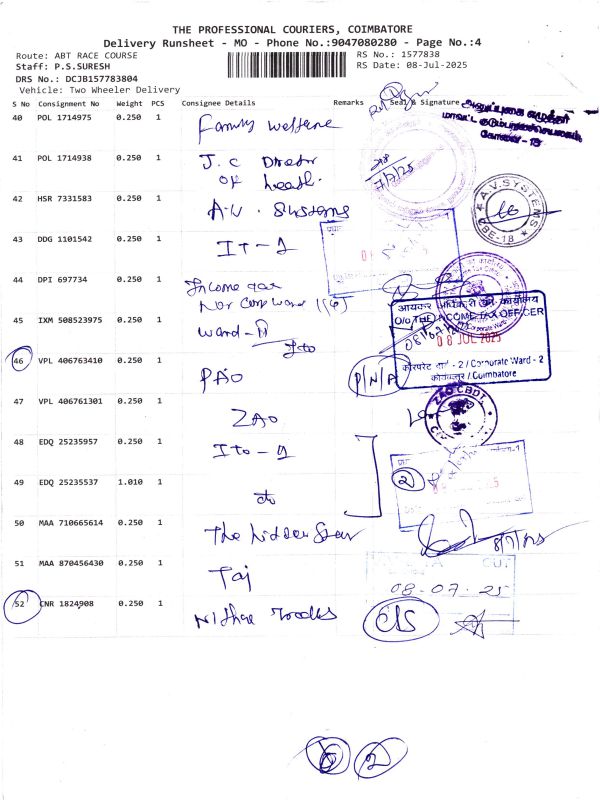 THE PROFESSIONAL COURIERS, COIMBATORE
Delivery Runsheet - MO - Phone No.:9047080280 - Page No.:4
Route: ABT RACE COURSE
RS No.: 1577838
Staff: P.S.SURESH
RS Date: 08-Jul-2025
DRS No.: DCJB157783804
Vehicle: Two Wheeler Delivery
S No Consignment No Weight PCS Consignee Details Remarks Seal & Signature
40 POL 1714975 0.250 1 Family welfare
41 POL 1714938 0.250 1 J. c
of
7/7/25
42 HSR 7331583 0.250 1 A.V. Systems
A.V. SYSTEMS
CBE-18
43 DDG 1101542 0.250 1 IT-2
44 DPI 697734 0.250 1 Income tax
Non Corp Ward
45 IXM 508523975 0.250 1 Ward-
Ito
आयकर अधिकारी का कार्यालय
O/o THE INCOME TAX OFFICER
08 JUL 2025
कॉरपरेट वार्ड - 2 / Corporate Ward - 2
कोयम्बत्तूर / Coimbatore
46 VPL 406763410 0.250 1 PAO
P/N/A
47 VPL 406761301 0.250 1 ZAO
ZAO CBDT.
48 EDQ 25235957 0.250 1 Ito-2
49 EDQ 25235537 1.010 1 do
2
50 MAA 710665614 0.250 1 The
8/7/25
51 MAA 870456430 0.250 1 Taj
08-07-25
52 CNR 1824908 0.250 1
C/S
2